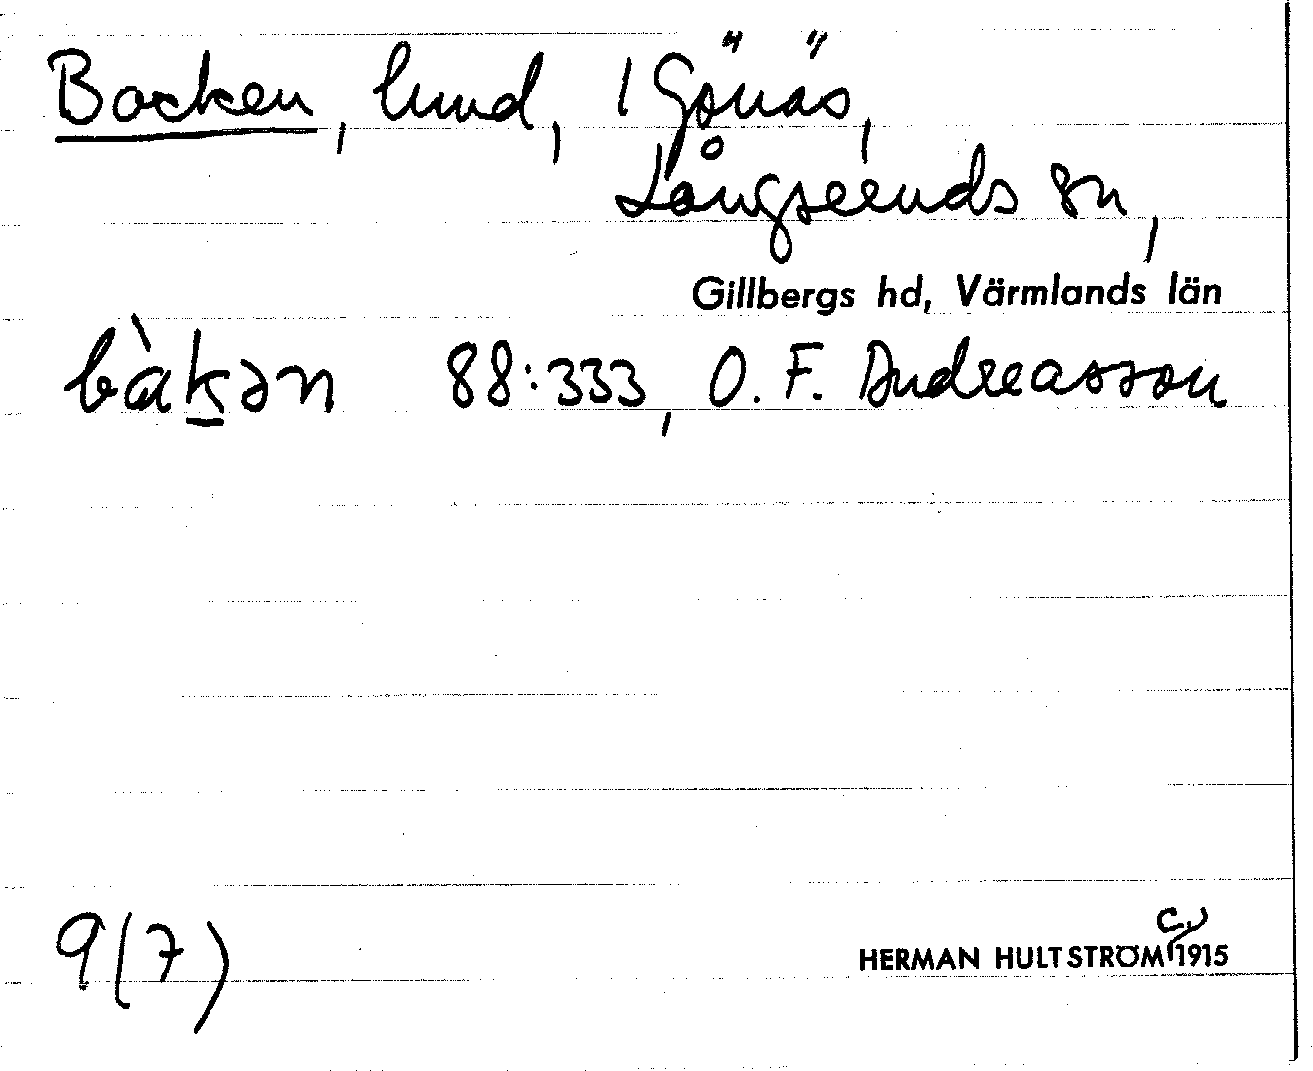 Backen, lund, 1 Gönäs,
Långseruds sn,
Gillbergs hd, Värmlands län
bàk̠ən 88:333, O. F. Andreasson
9(7)
c.
HERMAN HULTSTRÖM 1915